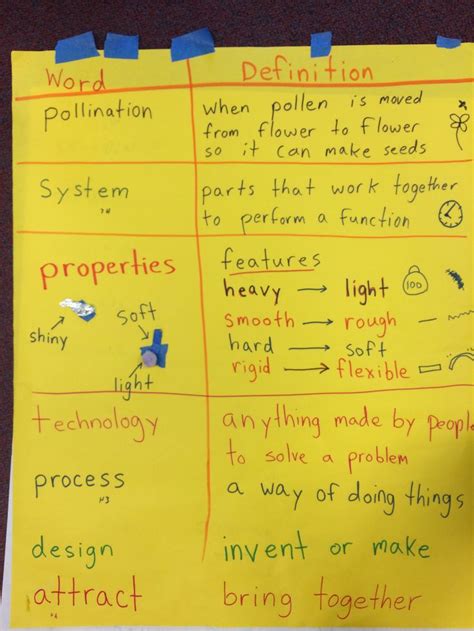 Word Definition
pollination when pollen is moved
from flower to flower
so it can make seeds
System parts that work together
to perform a function
properties features
heavy → light 100
smooth → rough
hard → soft
rigid → flexible
shiny
soft
light
technology anything made by people
to solve a problem
process a way of doing things
design invent or make
attract bring together